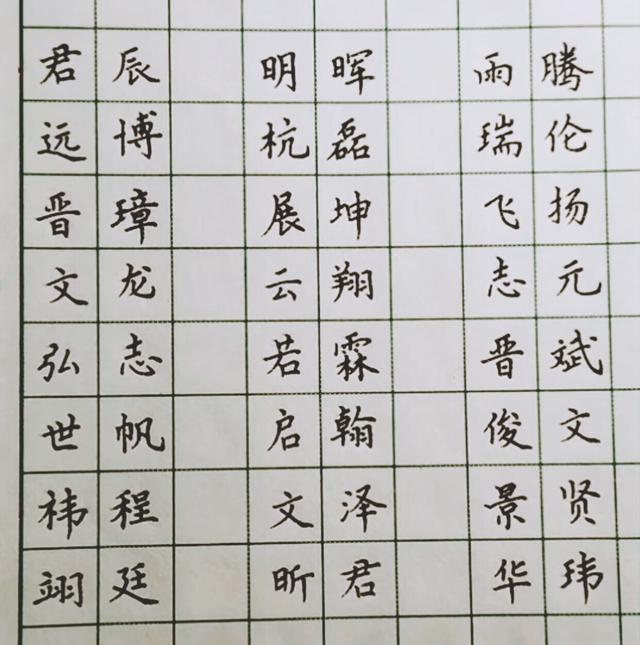 君辰 明晖 雨腾
远博 杭磊 瑞伦
晋璋 展坤 飞扬
文龙 云翔 志元
弘志 若霖 晋斌
世帆 启翰 俊文
祎程 文泽 景贤
翊廷 昕君 华玮